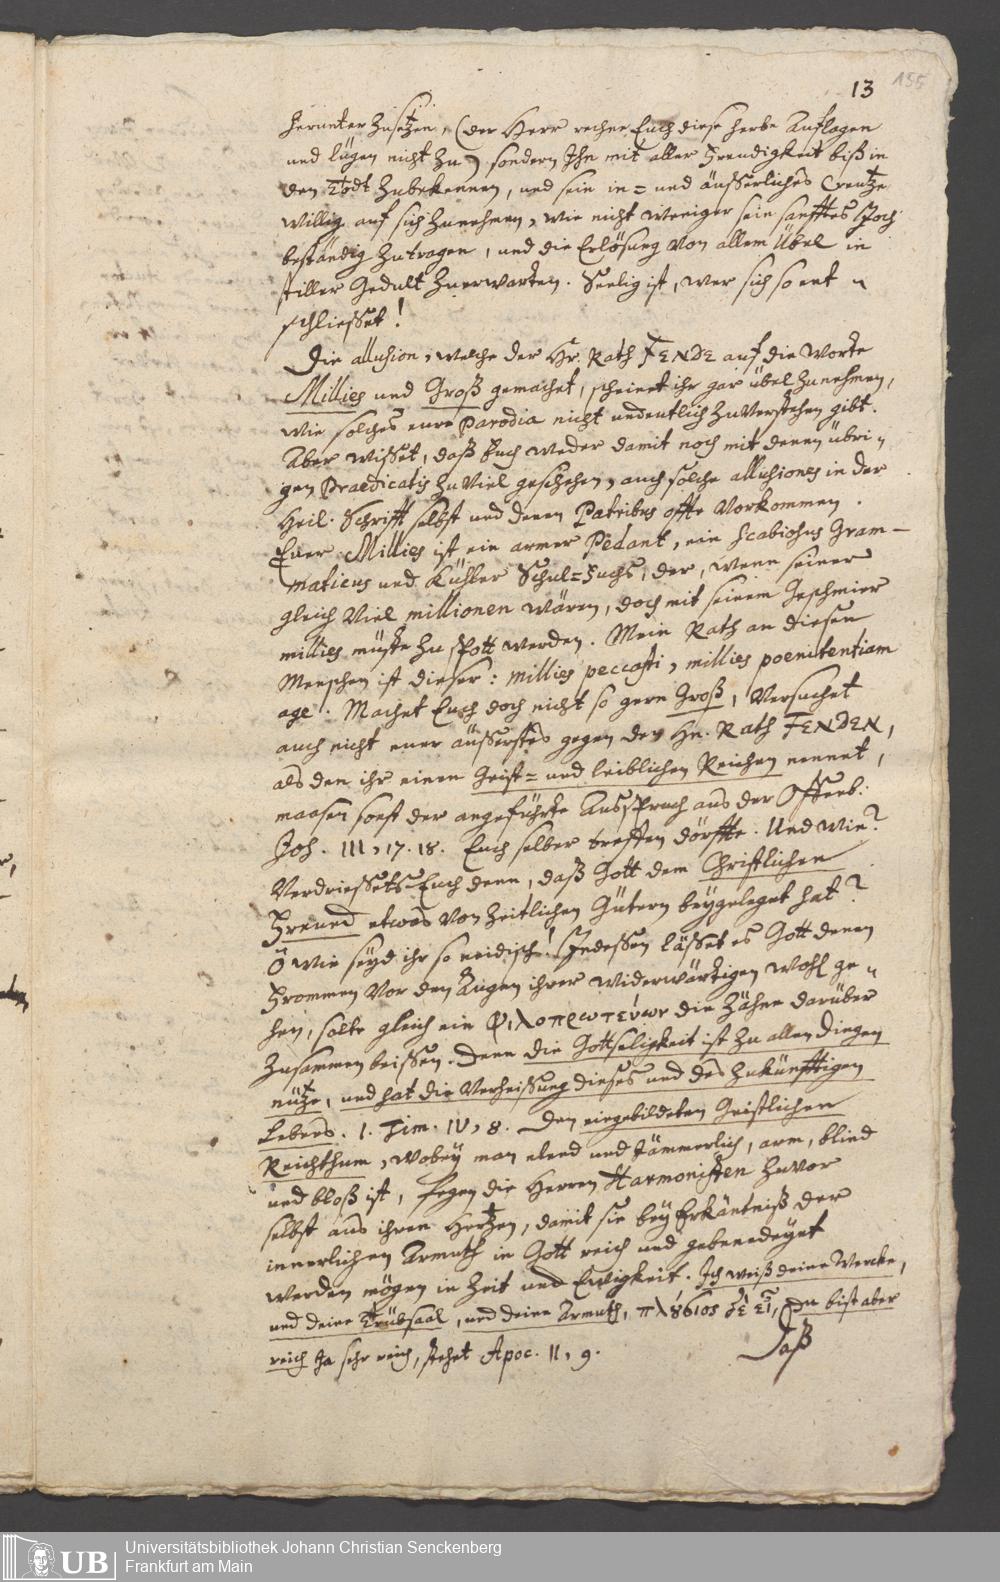 13
155
herunter Zusetzen, (der Herr rechne Euch diese herbe Auflagen
und lügen nicht Zu) sondern Ihn mit aller Freudigkeit biß in
den Todt Zubekennen, und sein in= und äusserliches Creutze
willig auf sich Zunehmen, wie nicht weniger sein sanfftes Joch
beständig Zutragen, und die Erlösung von allem Übel in
stiller Gedult Zuerwarten. Seelig ist, wer sich so ent=
schliesset!
Die allusion, welche der Hr. Rath FENDE auf die Worte
Millies und Groß gemachet, scheinet ihr gar übel Zunehmen,
wie solches eure Parodia nicht undeutlich Zuverstehen gibt.
Aber wisset, daß Euch weder damit noch mit denen übri=
gen Praedicatis Zuviel geschehen, auch solche allusiones in der
Heil. Schrifft selbst und denen Patribus offte vorkommen.
Euer Millies ist ein armer Pedant, ein scabiosus Gram=
maticus und kühler Schul=Fuchs, der, wenn seiner
gleich viel millionen wären, doch mit seinem Geschmier
millies müste Zu spott werden. Mein Rath an diesen
Menschen ist dieser: millies peccasti, millies poenitentiam
age. Machet Euch doch nicht so gern Groß, versuchet
auch nicht euer äusserstes gegen den Hn. Rath FENDEN,
als den ihr einen Geist= und leiblichen Reichen nennet,
maasen sonst der angeführte Ausspruch aus der Offenb.
Joh. III, 17. 18. Euch selber treffen dörffte. Und wie?
Verdriessets Euch denn, daß Gott dem Christlichen
Freund etwas von Zeitlichen Gütern beygeleget hat?
O wie seyd ihr so neidisch! Indessen lässet es Gott denen
Frommen vor den Augen ihrer widerwärtigen wohl ge=
hen, solte gleich ein Φιλοπρωτεύων die Zähne darüber
Zusammen beissen. Denn die Gottseligkeit ist Zu allen Dingen
nütze, und hat die Verheissung dieses und des Zukünfftigen
Lebens. 1. Tim. IV, 8. Den eingebildeten Geistlichen
Reichthum, wobey man elend und Jämmerlich, arm, blind
und bloß ist, fegen die Herren Harmonisten Zuvor
selbst aus ihren Hertzen, damit sie bey Erkäntniß der
innerlichen Armuth in Gott reich und gebenedeyet
werden mögen in Zeit und Ewigkeit. Ich weiß deine Wercke,
und deine Trübsaal, und deine Armuth, πλȣσιος δὲ εἶ, Du bist aber
reich Ja sehr reich, stehet Apoc. II, 9.
Daß
UB
Universitätsbibliothek Johann Christian Senckenberg
Frankfurt am Main